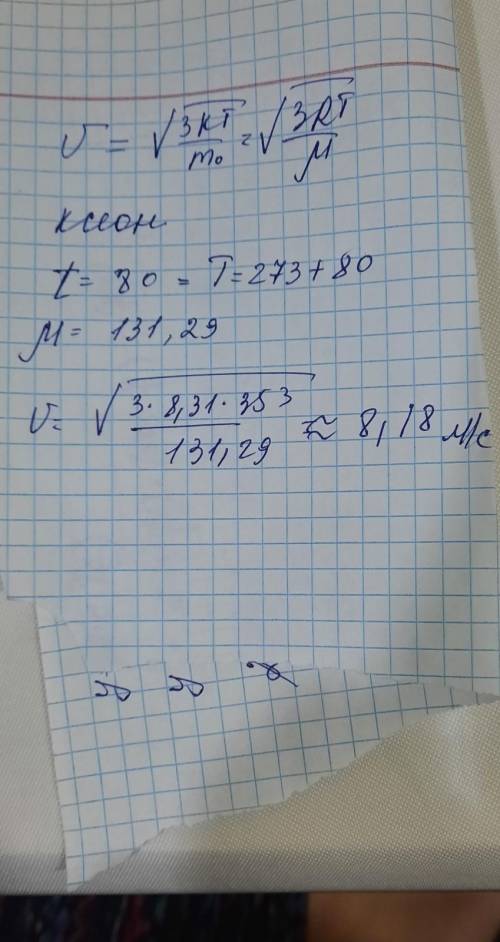 v = √3kT/m₀ = √3RT/M
ксион
t = 80 = T = 273 + 80
M = 131,29
v = √3·8,31·353/131,29 ≈ 8,18 м/с